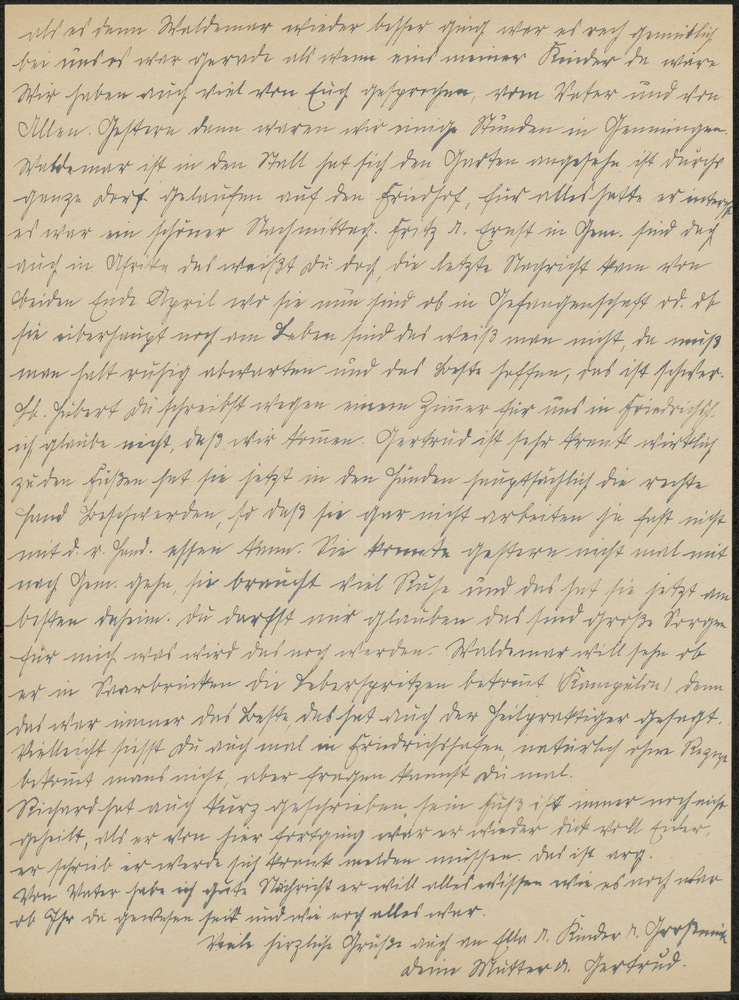 als es dann Waldemar wieder besser ging war es rech gemütlich
bei uns es war gerade als wenn eins meiner Kinder da wäre
Wir haben auch viel von Euch gesprochen, vom Vater und von
Allen. Gestern dann waren wir einige Stunden in Gemmingen.
Waldemar ist in den Stall hat sich den Garten angesehn ist durchs
ganze Dorf gelaufen auf den Friedhof, für alles hatte er
es war ein schöner Nachmittag. Fritz u. Ernst in Gem. sind doch
auch in Afrika das weißt Du doch, die letzte Nachricht kam von
beiden Ende April wo sie nun sind ob in Gefangenschaft od. ob
sie überhaupt noch am Leben sind das weiß man nicht, da muß
man halt ruhig abwarten und das beste hoffen, das ist schwer.
Lb. Hubert Du schreibst wegen einem Zimmer für uns in Friedrichsh.
ich glaube nicht, daß wir kommen. Gertrud ist sehr krank wirklich
zu den Füßen hat sie jetzt in den Händen hauptsächlich die rechte
Hand Beschwerden, so daß sie gar nicht arbeiten ja fast nicht
mit d. r. Hand. essen kann. Sie konnte gestern nicht mal mit
nach Gem. gehn, sie braucht viel Ruhe und das hat sie jetzt am
besten daheim. Du darfst mir glauben das sind große Sorgen
für mich was wird das noch werden. Waldemar will sehn ob
er in Saarbrücken die Leberspritzen bekommt (Kampolon) denn
das war immer das Beste, das hat auch der Heilpraktiger gesagt.
Vielleicht siehst Du auch mal in Friedrichshafen, natürlich ohne
bekommt mans nicht, aber fragen kannst Du mal.
Richard hat auch kurz geschrieben, sein Fuß ist immer noch nicht
geheilt, als er von hier fortging war er wieder dick voll Eider,
er schrieb er werde sich krank melden müssen. Das ist arg.
Von Vater habe ich gute Nachricht er will alles wissen wie es noch war
ob Ihr da gewesen seit und wie noch alles war.
Viele herzliche Grüße auch an Ella u. Kinder u.
Deine Mutter u. Gertrud.